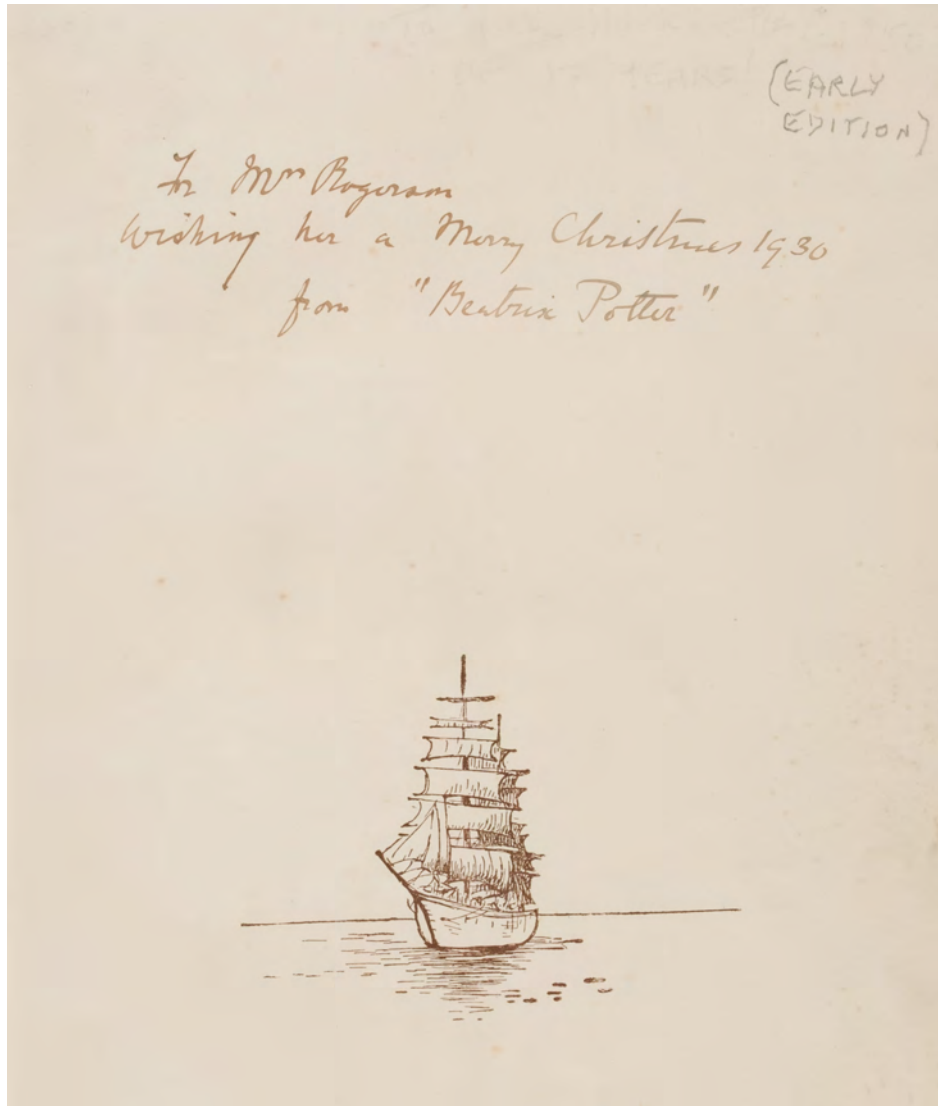 (EARLY
EDITION)
For Mrs Rogerson
wishing her a Merry Christmas 1930
from "Beatrix Potter"